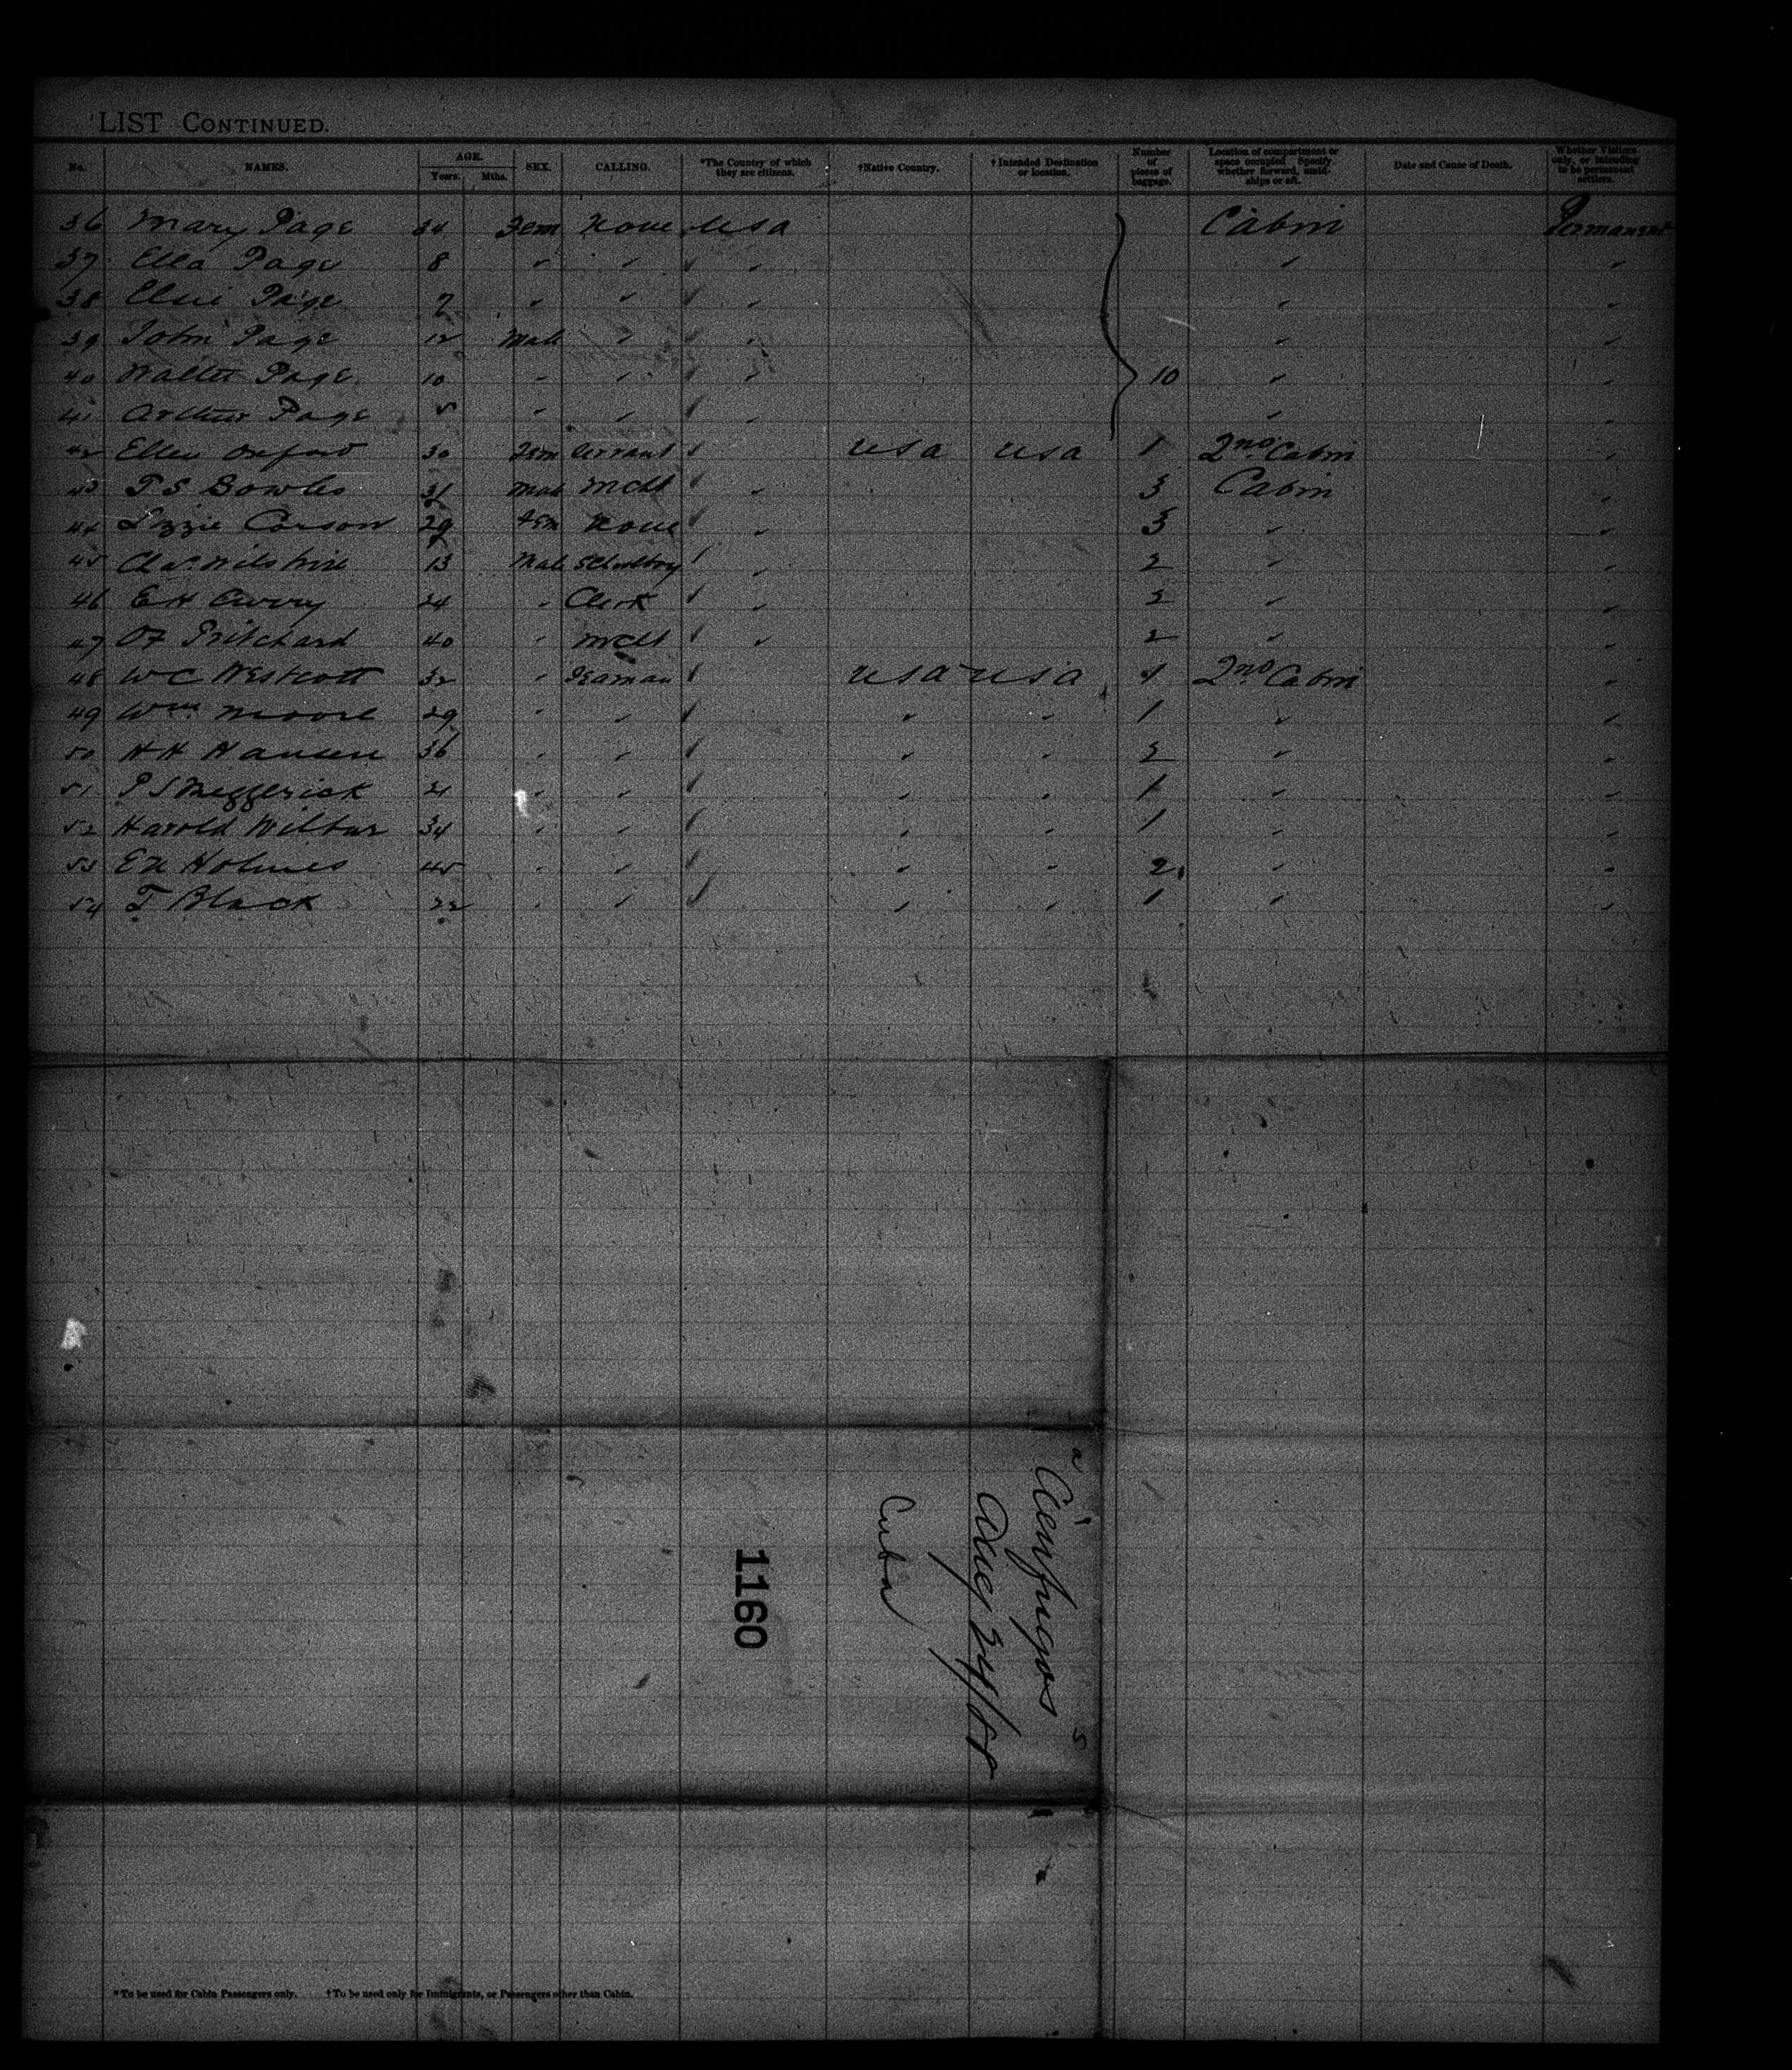 LIST CONTINUED.
No. NAMES. AGE. Years. Mths. SEX. CALLING. *The Country of which they are citizens. †Native Country. †Intended Destination or location. Number of pieces of baggage. Location of compartment or space occupied Specify whether forward, amid-ships or aft. Date and Cause of Death. Whether Visitors only, or intending to be permanent settlers.
36 Mary Page 34 Fem None USA Cabin Permanent
37 Ella Page 8 " " " " "
38 Elsie Page 7 " " " " "
39 John Page 12 Male " " " "
40 Walter Page 10 " " " 10 " "
41 Arthur Page 5 " " " " "
42 Ellen Oxford 30 Fem Servant USA USA 1 2nd Cabin "
43 Bowles 31 Male Mcht " 3 Cabin "
44 Lizzie Corson 29 Fem None " 3 " "
45 Chas. Wilshire 13 Male Schoolboy " 2 " "
46 24 " Clerk " 2 " "
47 Pritchard 40 " Mcht " 2 " "
48 WC Westcott 32 " Seaman USA USA 1 2nd Cabin "
49 Wm Moore 29 " " " " 1 " "
50 HH Hansen 36 " " " " 2 " "
51 21 " " " " 1 " "
52 Harold Wilbur 34 " " " " 1 " "
53 Holmes 45 " " " " 2 " "
54 Black 22 " " " " 1 " "
Cienfuegos
Aug 24/88
Cuba
1160
*To be used for Cabin Passengers only. †To be used only for Immigrants, or Passengers other than Cabin.